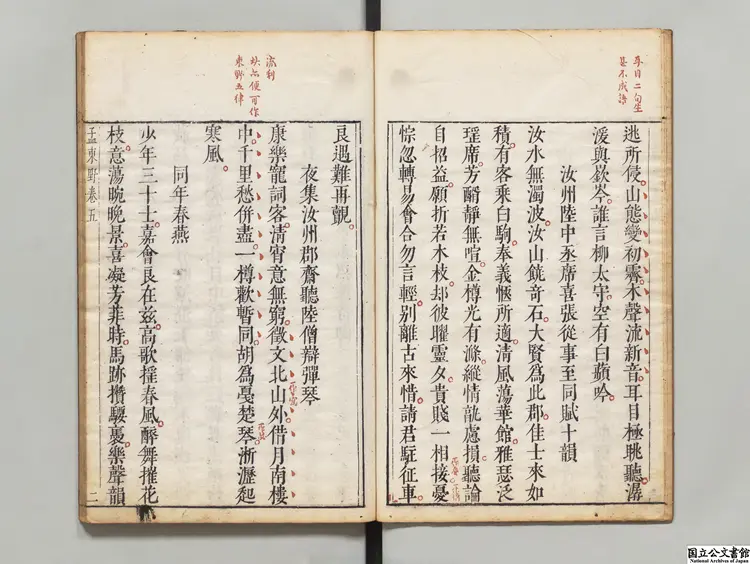 耳目二句生
甚不成語
逃所侵山態變初霽水聲流新音耳目極眺聽潺
湲與嶔岑誰言柳太守空有白蘋吟
汝州陸中丞席喜張從事至同賦十韻
汝水無濁波汝山饒奇石大賢為此郡佳士來如
積有客乘白駒奉義愜所適清風蕩華館雅瑟泛
瑤席芳醑靜無喧金樽光有滌縱情孰慮損聽論
自招益願折若木枝却彼曜靈夕貴賤一相接憂
悰忽轉易會合勿言輕別離古來惜請君駐征車
良遇難再覿
夜集汝州郡齋聽陸僧辯彈琴
康樂寵詞客清宵意無窮徵文北山外借月南樓
中千里愁併盡一樽歡暫同胡為戛楚琴淅瀝起
寒風
同年春燕
少年三十士嘉會良在茲高歌搖春風醉舞摧花
枝意蕩晼晚景喜凝芳菲時馬跡攢騕褭樂聲韻
孟東野卷五
二
流利
東野五律
国立公文書館
National Archives of Japan